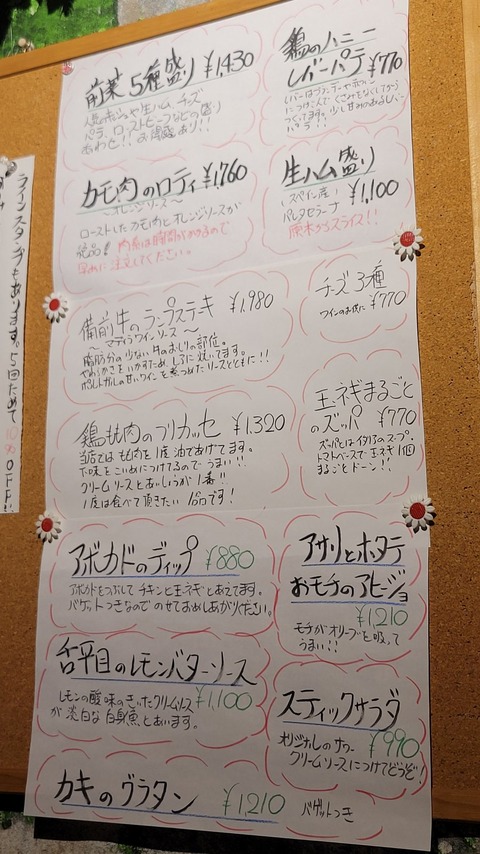 前菜5種盛り ¥1,430
人気のキッシュや生ハム チーズ
パテ、ローストビーフなどの盛り
合わせ!! お得感あり!!
鶏のハニー
レバーパテ ¥770
カモ肉のロティ ¥1,760
〜オレンジソース〜
ローストしたカモ肉とオレンジソースが
絶品!! 肉系は時間がかかるので
早めに注文してください。
生ハム盛り
¥1,100
(スペイン産)
パレタセラーナ
原木からスライス!!
備前牛のランプステーキ ¥1,980
〜マディラワインソース〜
脂肪分の少ない牛のおしりの部位。
やわらかさをいかすため しずに焼いてます。
ポルトガルの甘いワインを煮つめたソースとともに!!
チーズ3種
ワインのお供に ¥770
鶏もも肉のフリカッセ ¥1,320
当店では もも肉を1度油であげてます。
下味をこいめにつけてるので うまい!!
クリームソースとあいしょうが1番!!
1度は食べて頂きたい 1品です!
玉ネギまるごと
のズッパ ¥770
ズッパとはイタリアのスープ。
トマトベースで玉ネギ1個
まるごとドーン!!
アボカドのディップ ¥880
アボカドをつぶして チキンと玉ネギとあえてます。
バゲットつきなので のせてお召しあがりください。
アサリとホタテ
おモチのアヒージョ
¥1,210
モチがオリーブを吸って
うまい!!
舌平目のレモンバターソース
¥1,100
レモンの酸味のきいたクリームソース
が 淡白な白身魚とあいます。
スティックサラダ
¥990
オリジナルのサワー
クリームソースにつけてどうぞ!
カキのグラタン ¥1,210 バゲットつき
ラインスタンプもあります。5回ためて
10% OFF!!